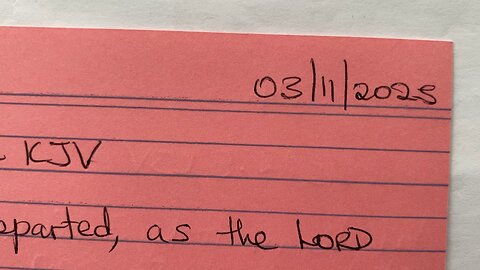 03/11/2025
KJV
eparted, as the LORD